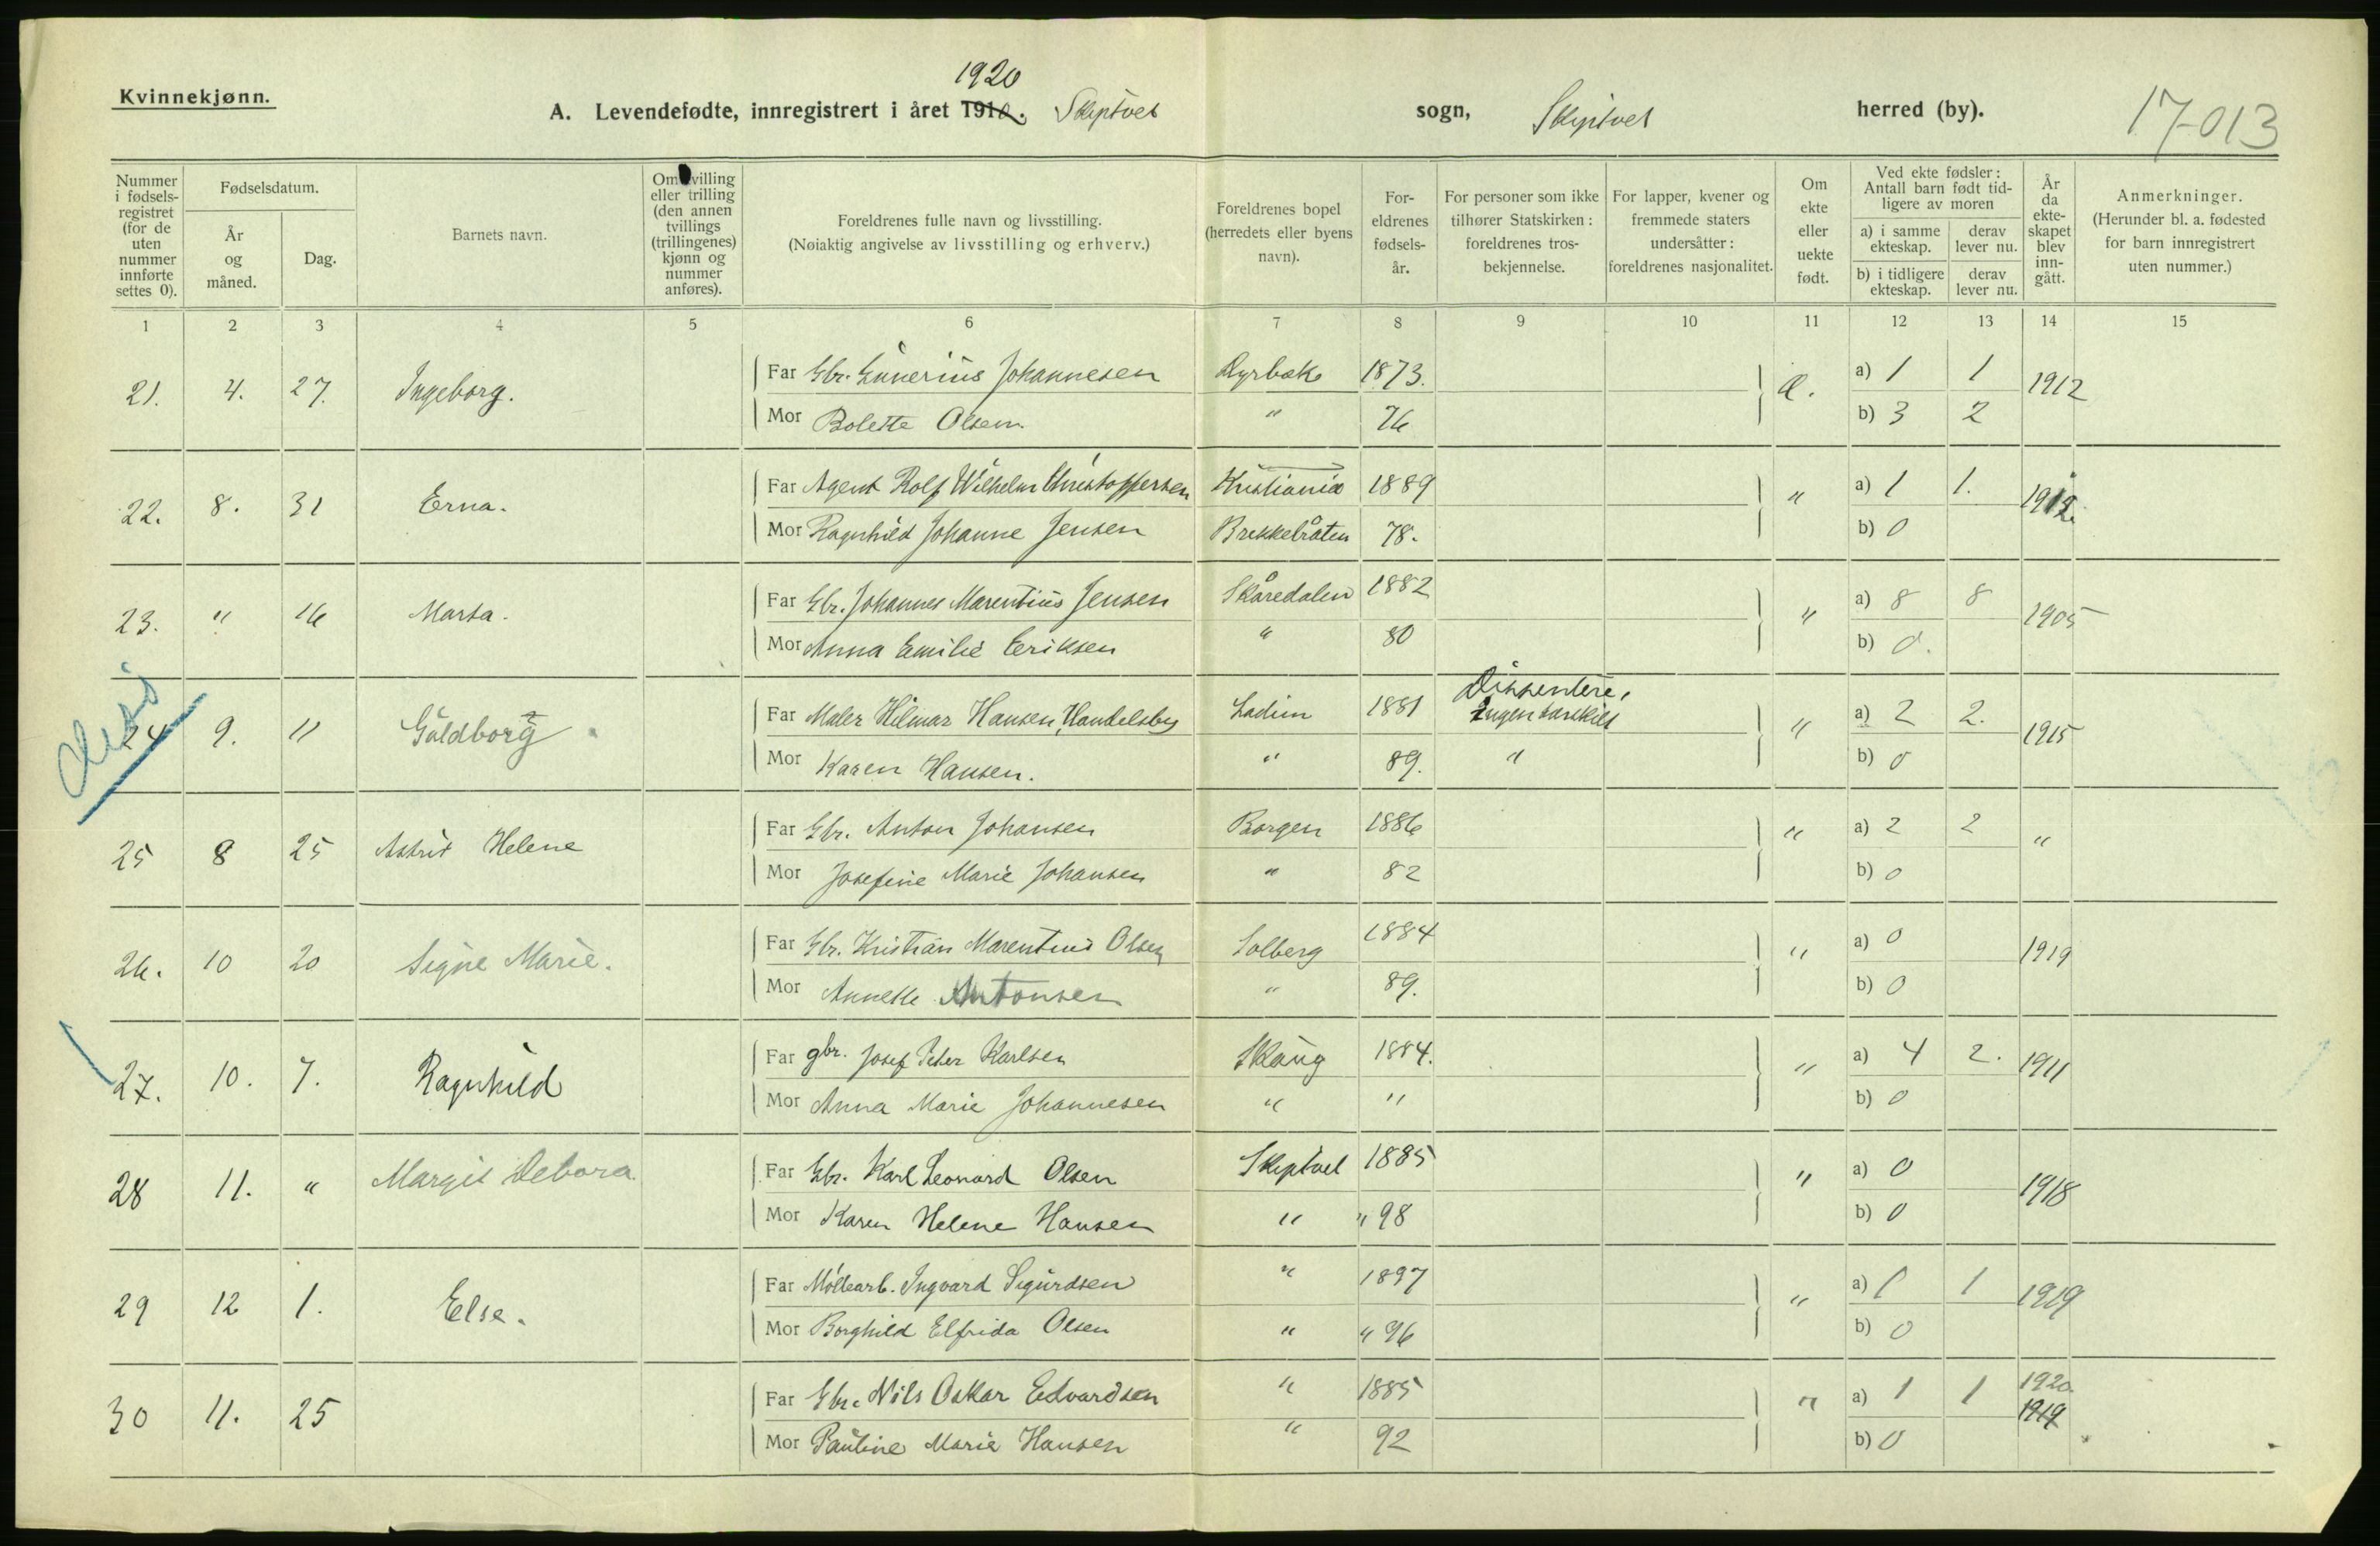 1920
Kvinnekjønn.
A. Levendefødte, innregistrert i året 191 . Skiptvet sogn, Skiptvet herred (by).
17-013
Nummer i fødsels-registret (for de uten nummer innførte settes 0).
Fødselsdatum.
År og måned.
Dag.
Barnets navn.
Om tvilling eller trilling (den annen tvillings (trillingenes) kjønn og nummer anføres).
Foreldrenes fulle navn og livsstilling.
(Nøiaktig angivelse av livsstilling og erhverv.)
Foreldrenes bopel (herredets eller byens navn).
For-eldrenes fødsels-år.
For personer som ikke tilhører Statskirken: foreldrenes tros-bekjennelse.
For lapper, kvener og fremmede staters undersåtter: foreldrenes nasjonalitet.
Om ekte eller uekte født.
Ved ekte fødsler: Antall barn født tid-ligere av moren
a) i samme ekteskap.
derav lever nu.
b) i tidligere ekteskap.
derav lever nu.
År da ekte-skapet blev inn-gått.
Anmerkninger.
(Herunder bl. a. fødested for barn innregistrert uten nummer.)
1 2 3 4 5 6 7 8 9 10 11 12 13 14 15
21. 4. 27. Ingeborg. Far Gbr. Gunerius Johannesen Dyrbæk 1873. æ. a) 1 1 1912
Mor Bolette Olsen " 76 b) 3 2
22. 8. 31 Erna. Far Agent Rolf Wilhelm Christoffersen Kristiania 1889 " a) 1 1.
Mor Ragnhild Johanne Jensen Brekkebråten 78. b) 0
23. " 16 Marta. Far Gbr. Johannes Marentius Jensen Skåredalen 1882 " a) 8 8 1905
Mor Anna Emilie Eriksen " 80 b) 0.
Diss
24 9. 11 Guldborg Far Maler Hilmar Hansen, Handelsby Ladim 1881 Dissentere, Ingen barskild " a) 2 2. 1915
Mor Karen Hansen. " 89. " b) 0
25 8 25 Astrid Helene Far Gbr. Anton Johansen Borgen 1886 " a) 2 2 "
Mor Josefine Marie Johansen " 82 b) 0
26. 10 20 Signe Marie. Far Gbr. Kristian Marentius Olsen Solberg 1884 " a) 0 1919
Mor Annette Antonsen " 89. b) 0
27. 10. 7. Ragnhild Far gbr. Josef Peter Karlsen Skaug 1884. " a) 4 2. 1911
Mor Anna Marie Johannesen " " b) 0
28 11. " Margit Debora Far Gbr. Karl Leonard Olsen Skiptvet 1885 " a) 0 1918
Mor Karen Helene Hansen " " 98 b) 0
29 12 1. Else. Far Möllearb. Ingvard Sigurdsen " 1897 " a) 1 1 1919
Mor Borghild Elfrida Olsen " " 96 b) 0
30 11. 25 Far Gbr. Nils Oskar Edvardsen " 1885 " a) 1 1 1920. 1919
Mor Pauline Marie Hansen " 92 b) 0